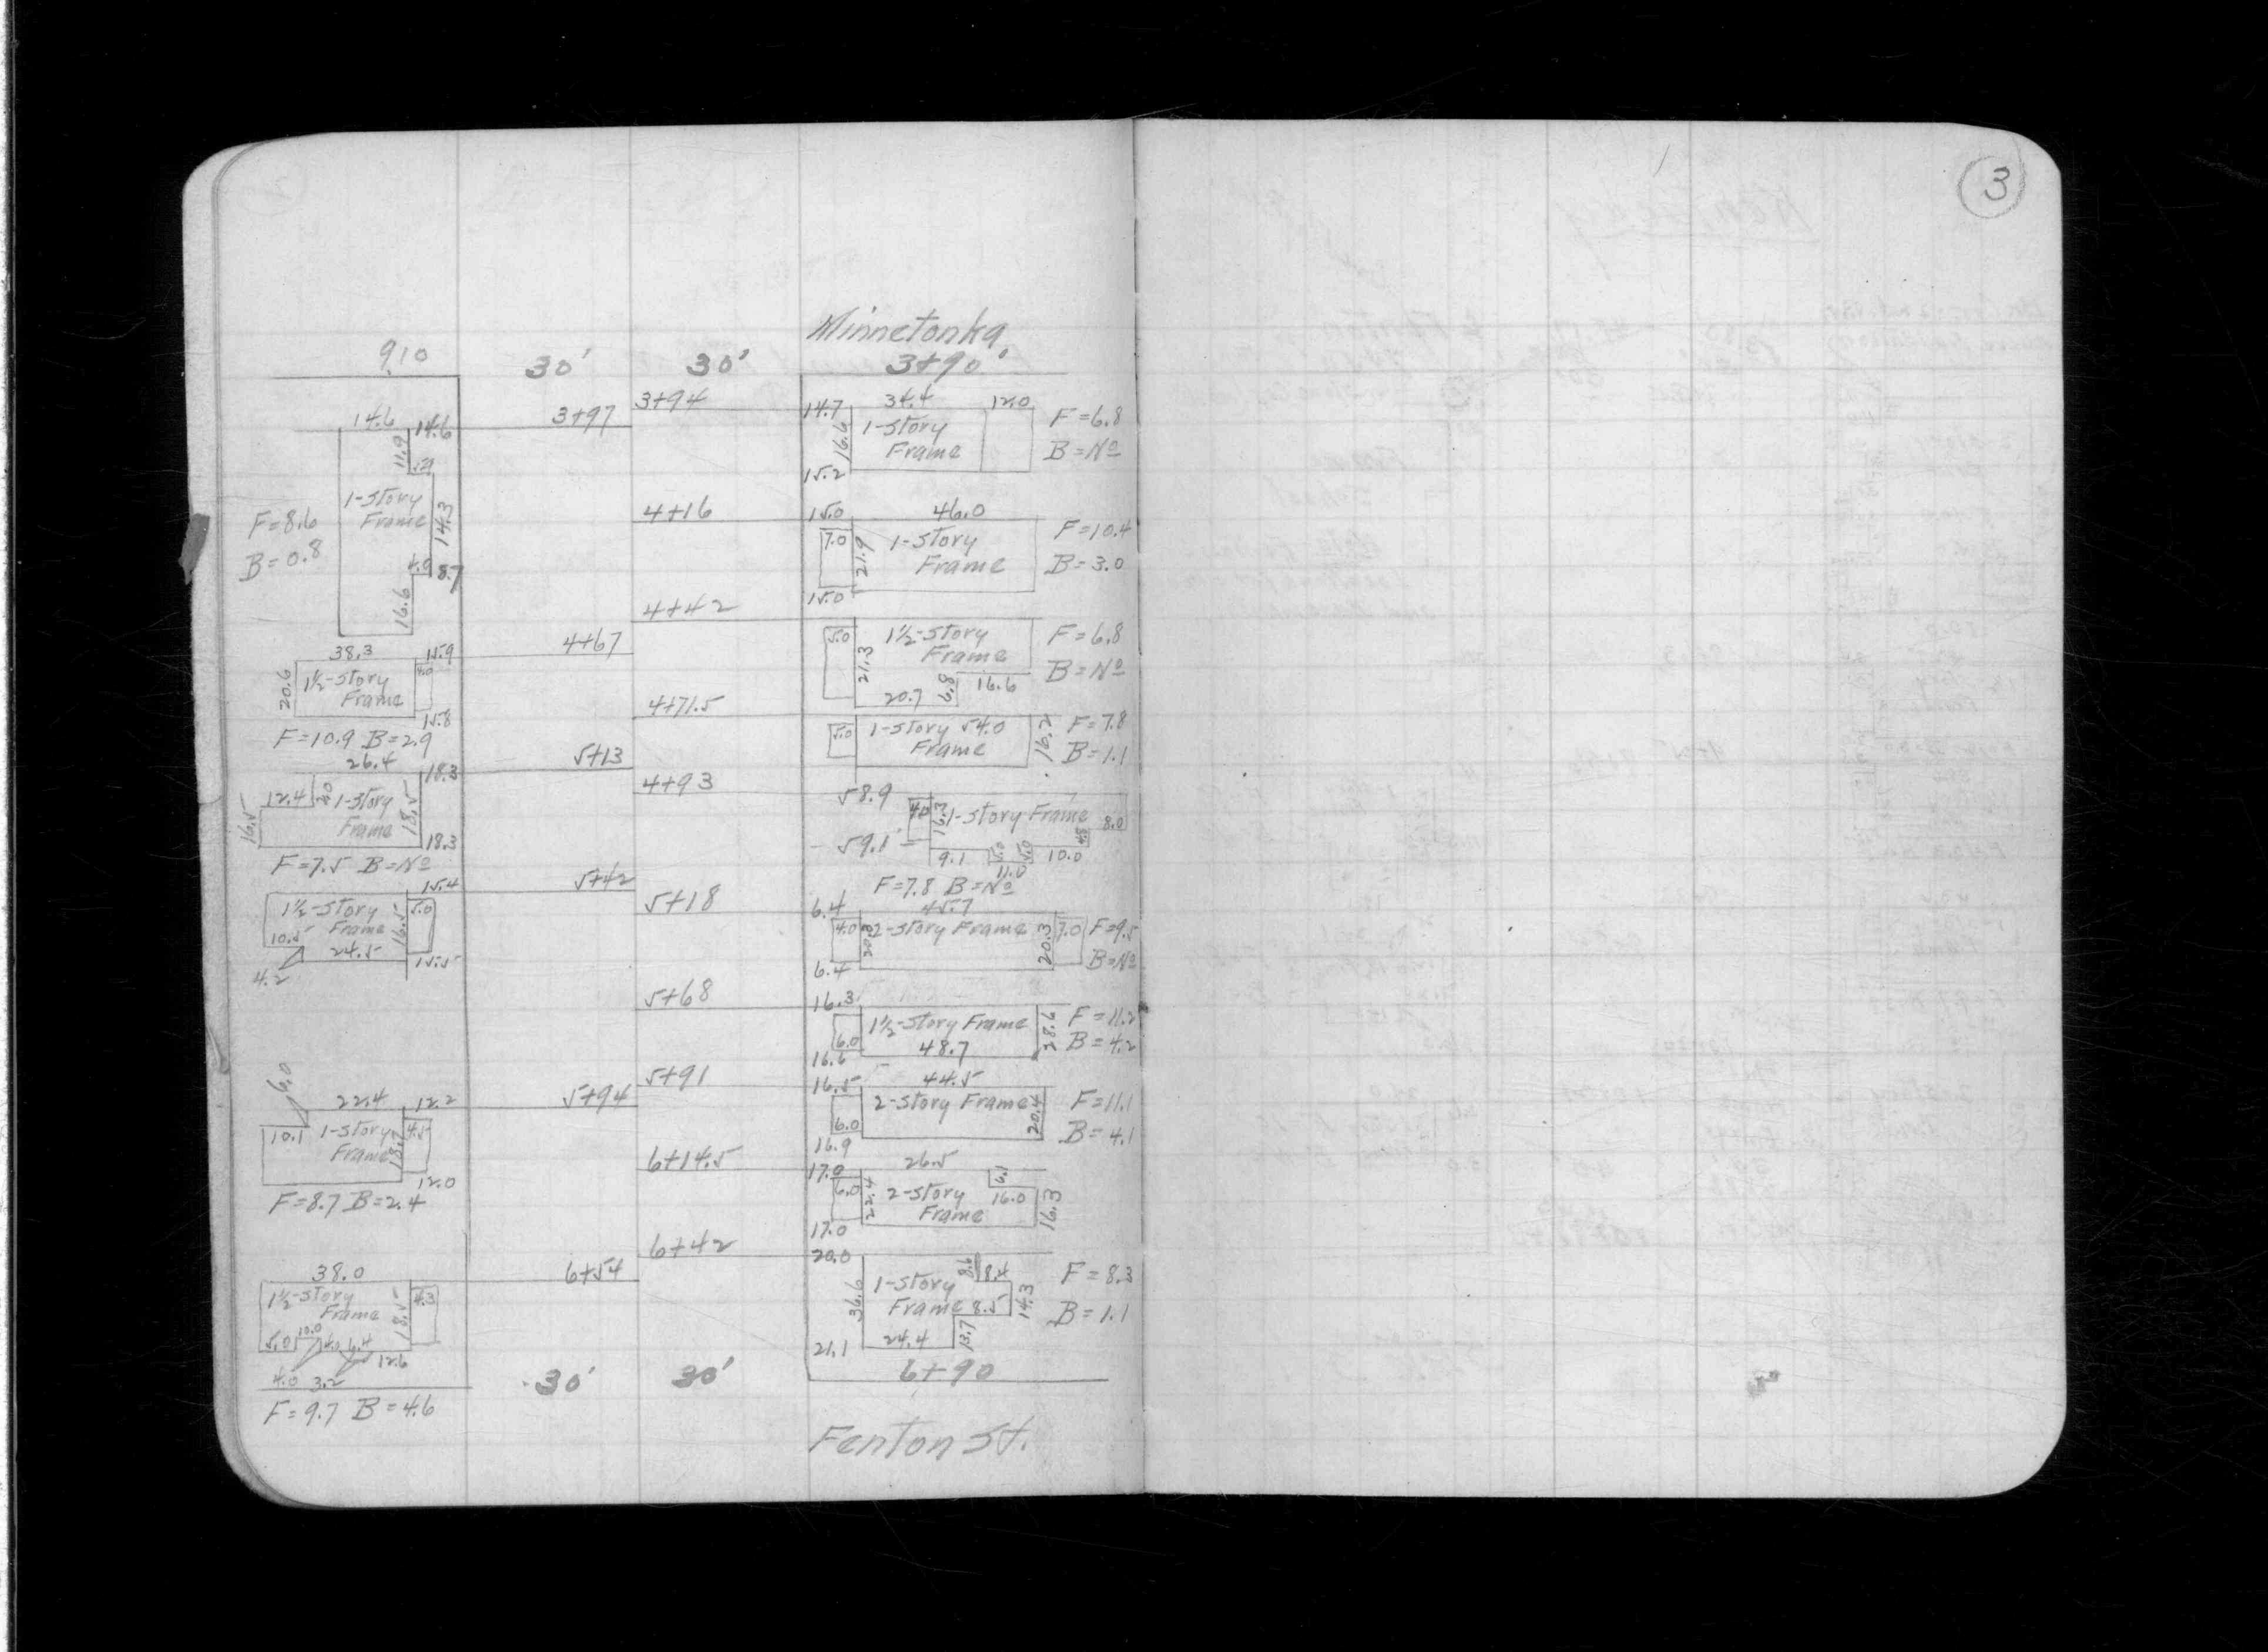 3
Minnetonka
910 30' 30' 3+90'
3+97 3+94
14.6 14.6
11.9
5.9
1-Story
Frame
14.3
F=8.6
B=0.8
4.0 8.7
16.6
14.7 34.4 12.0
16.6 1-Story
Frame
15.2
F=6.8
B=Nº
4+16
15.0 46.0
7.0 21.9 1-Story
Frame
15.0
F=10.4
B=3.0
4+42
5.0 21.3 1½-Story
Frame
20.7 6.8 16.6
F=6.8
B=Nº
4+67
38.3 15.9
20.6 1½-Story
Frame
4.0
15.8
F=10.9 B=2.9
4+71.5
5.0 1-Story 54.0
Frame
16.2
F=7.8
B=1.1
5+13
26.4 18.3
12.4 1-Story
Frame
18.5
16.5
18.3
F=7.5 B=Nº
4+93
58.9
4.0 16.3 1-Story Frame 8.0
59.1
9.1 5.0 5.0 10.0 4.8
11.0
F=7.8 B=Nº
5+42
15.4
1½-Story
Frame
16.5 5.0
10.5
24.5 15.5
4.2
5+18
6.4 45.7
4.0 20.3 2-Story Frame 20.3 7.0
6.4
F=9.5
B=Nº
5+68
16.3
6.0 1½-Story Frame
48.7
28.6
16.6
F=11.2
B=4.2
5+91
16.5 44.5
2-Story Frame
6.0 20.4
16.9
F=11.1
B=4.1
5+94
6.0
22.4 12.2
10.1 1-Story
Frame
18.7 4.5
12.0
F=8.7 B=2.4
6+14.5
17.0 26.5
6.0 22.4 2-Story
Frame
6.1
16.0 16.3
17.0
6+42
20.0
36.6 1-Story
Frame
8.6 8.4
8.5 14.3
24.4 13.7
21.1
F=8.3
B=1.1
6+54
38.0
1½-Story
Frame
18.5 4.3
5.0 10.0 4.0 6.4
12.6
4.0 3.2
F=9.7 B=4.6
30' 30' 6+90
Fenton St.